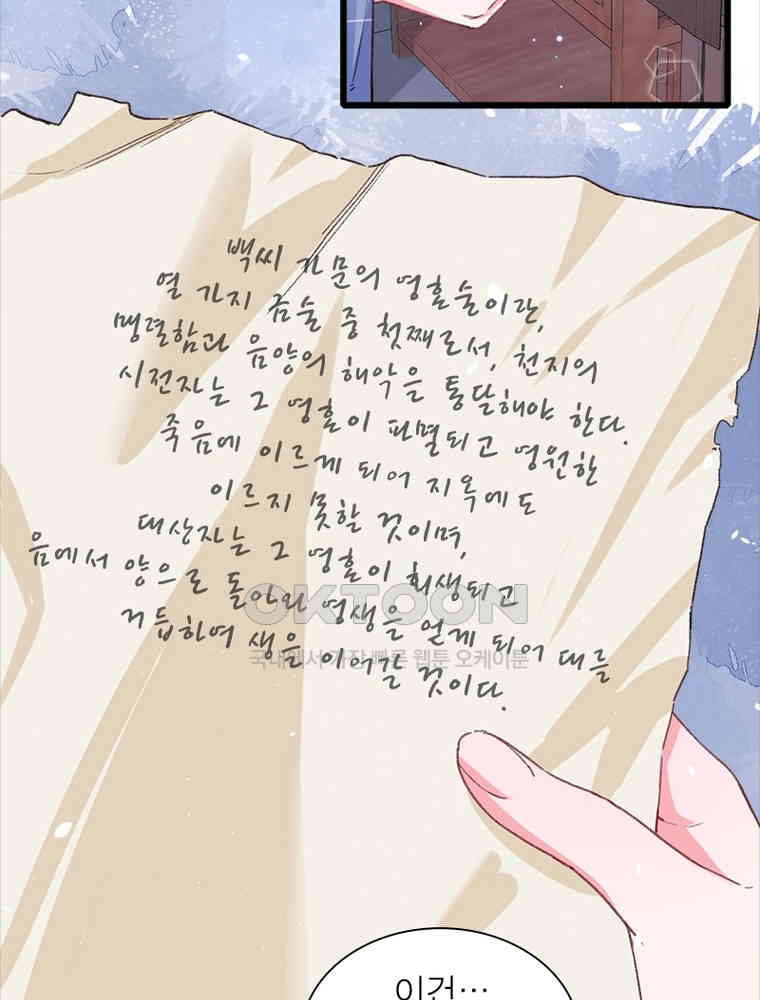 백씨 가문의 영혼술이란,
열 가지 금술 중 첫째로서, 천지의
맹렬함과 음양의 해악을 통달해야 한다.
시전자는 그 영혼이 파멸되고 영원한
죽음에 이르게 되어 지옥에도
이르지 못할 것이며,
대상자는 그 영혼이 회생되고
음에서 양으로 돌아와 영생을 얻게 되어 대를
거듭하여 생을 이어갈 것이다.
OKTOON
국내에서 가장 빠른 웹툰 오케이툰
이건…